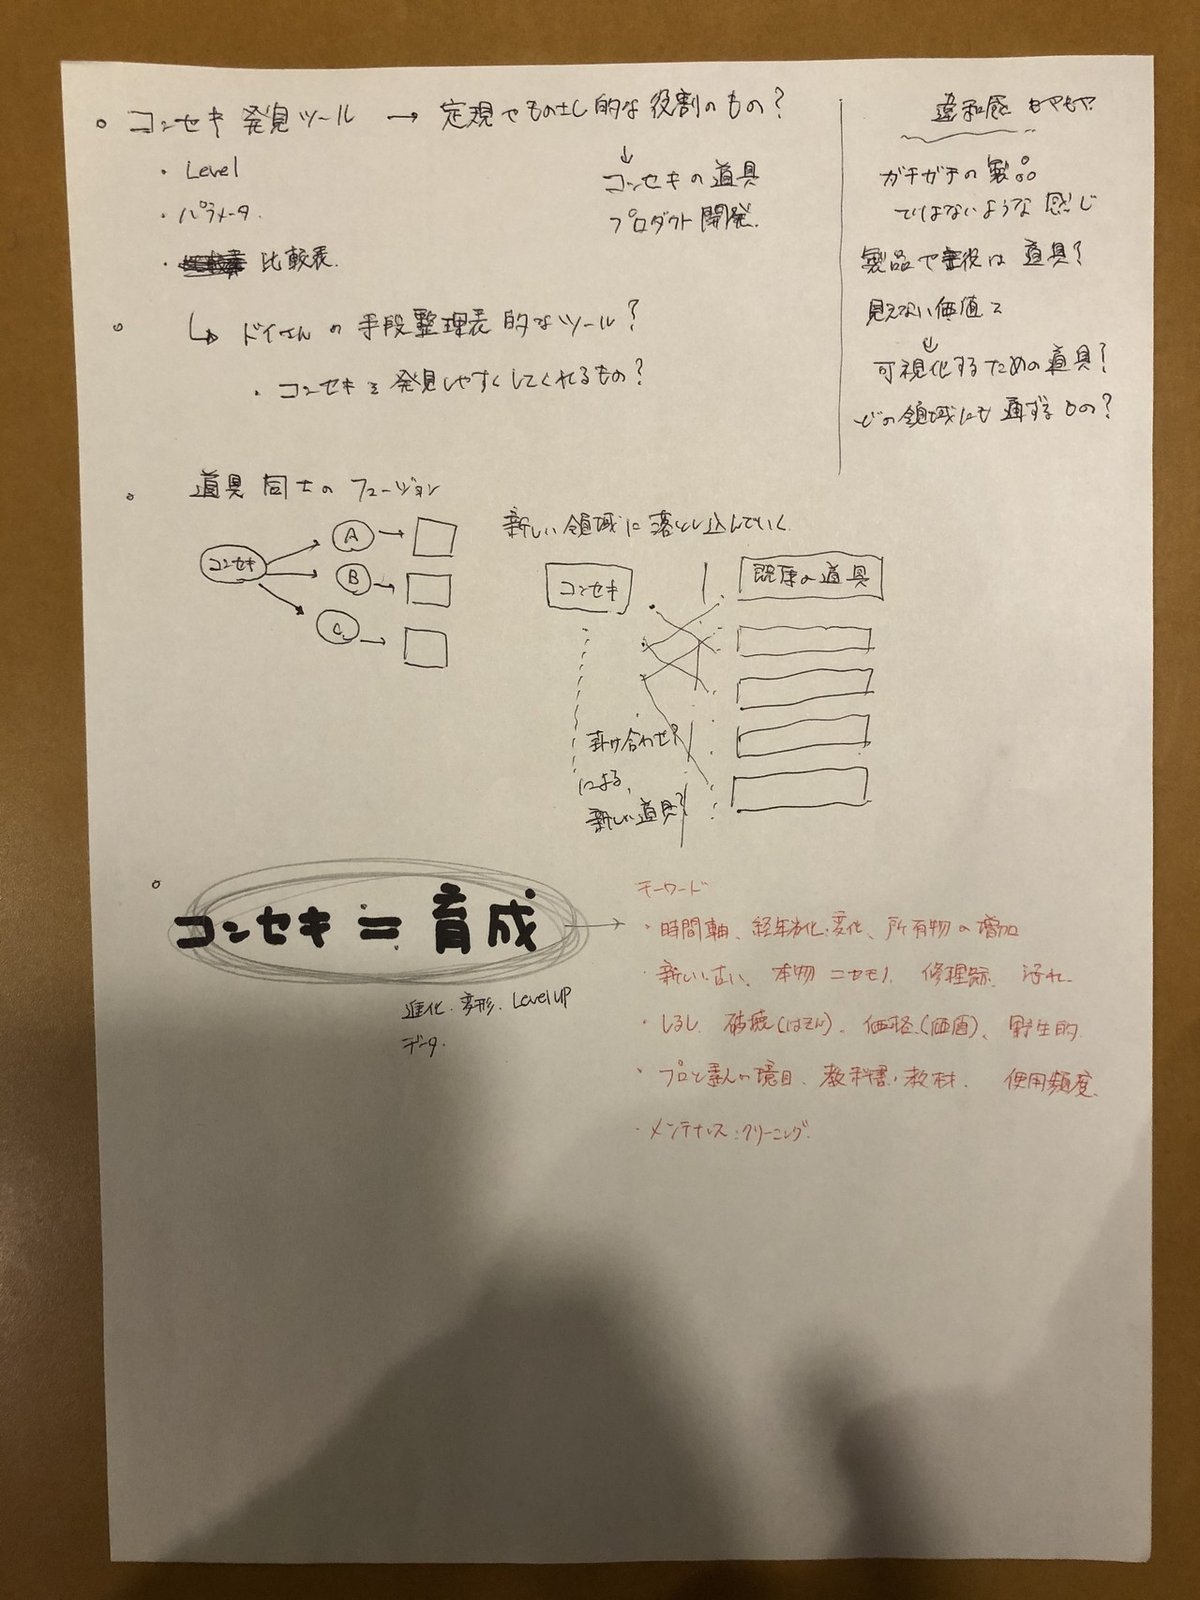 コンセキ 発見ツール → 定規やものさし的な役割のもの？
・Level
・パラメータ.
・比較表.
↓
コンセキの道具
プロダクト開発.
↳ ドイさんの手段整理表的なツール？
・コンセキを発見しやすくしてくれるもの？
違和感 もやもや
ガチガチの製品
ではないような感じ
製品で主役は道具？
見えない価値を
↓
可視化するための道具？
どの領域にも通ずるもの？
道具同士のフュージョン
コンセキ
A →
B →
C →
新しい領域に落とし込んでいく
コンセキ
既存の道具
掛け合わせ？
による、
新しい道具？
コンセキ = 育成
進化. 変形. Level UP
データ.
キーワード
・時間軸、経年劣化・変化、所有物の増加
・新しい・古い、本物 ニセモノ、修理跡、汚れ
・しるし、破損(はそん)、価格(価値)、野生的
・プロと素人の境目、教科書・教材、使用頻度、
・メンテナンス・クリーニング